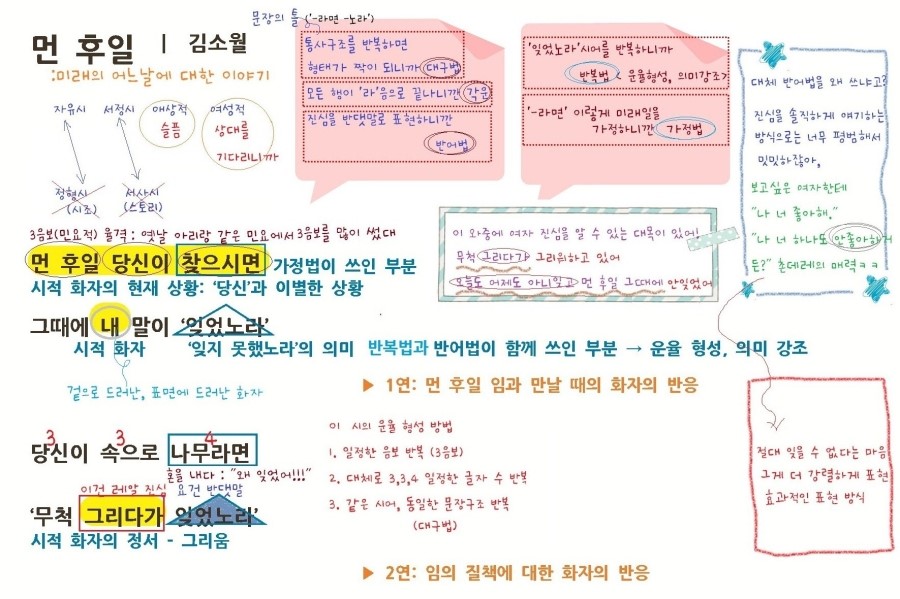 먼 후일 | 김소월
:미래의 어느날에 대한 이야기
자유시 서정시 애상적 여성적
슬픔 상대를
기다리니까
정형시 서사시
(시조) (스토리)
문장의 틀 ('-라면 -노라')
통사구조를 반복하면
형태가 짝이 되니까 대구법
모든 행이 '라'음으로 끝나니깐 각운
진심을 반댓말로 표현하니깐
반어법
'잊었노라'시어를 반복하니까
반복법 < 운율형성, 의미강조>
'-라면' 이렇게 미래일을
가정하니깐 가정법
대체 반어법을 왜 쓰냐고?
진심을 솔직하게 얘기하는
방식으로는 너무 평범해서
밋밋하잖아,
보고싶은 여자한테
"나 너 좋아해."
"나 너 하나도 안좋아하거
든?" 츤데레의 매력ㅋㅋ
이 와중에 여자 진심을 알 수 있는 대목이 있어!
무척 그리다가 그리워하고 있어
오늘도 어제도 아니잊고 먼 후일 그때에 안잊었어
3음보(민요적) 율격 : 옛날 아리랑 같은 민요에서 3음보를 많이 썼대
먼 후일 당신이 찾으시면 가정법이 쓰인 부분
시적 화자의 현재 상황: '당신'과 이별한 상황
그때에 내 말이 '잊었노라'
시적 화자 '잊지 못했노라'의 의미 반복법과 반어법이 함께 쓰인 부분 → 운율 형성, 의미 강조
겉으로 드러난, 표면에 드러난 화자
▶ 1연: 먼 후일 임과 만날 때의 화자의 반응
3 3 4
당신이 속으로 나무라면
혼을 내다 : "왜 잊었어!!!"
이건 레알 진심 요건 반댓말
'무척 그리다가 잊었노라'
시적 화자의 정서 - 그리움
이 시의 운율 형성 방법
1. 일정한 음보 반복 (3음보)
2. 대체로 3,3,4 일정한 글자 수 반복
3. 같은 시어, 동일한 문장구조 반복
(대구법)
▶ 2연: 임의 질책에 대한 화자의 반응
절대 잊을 수 없다는 마음
그게 더 강렬하게 표현
효과적인 표현 방식